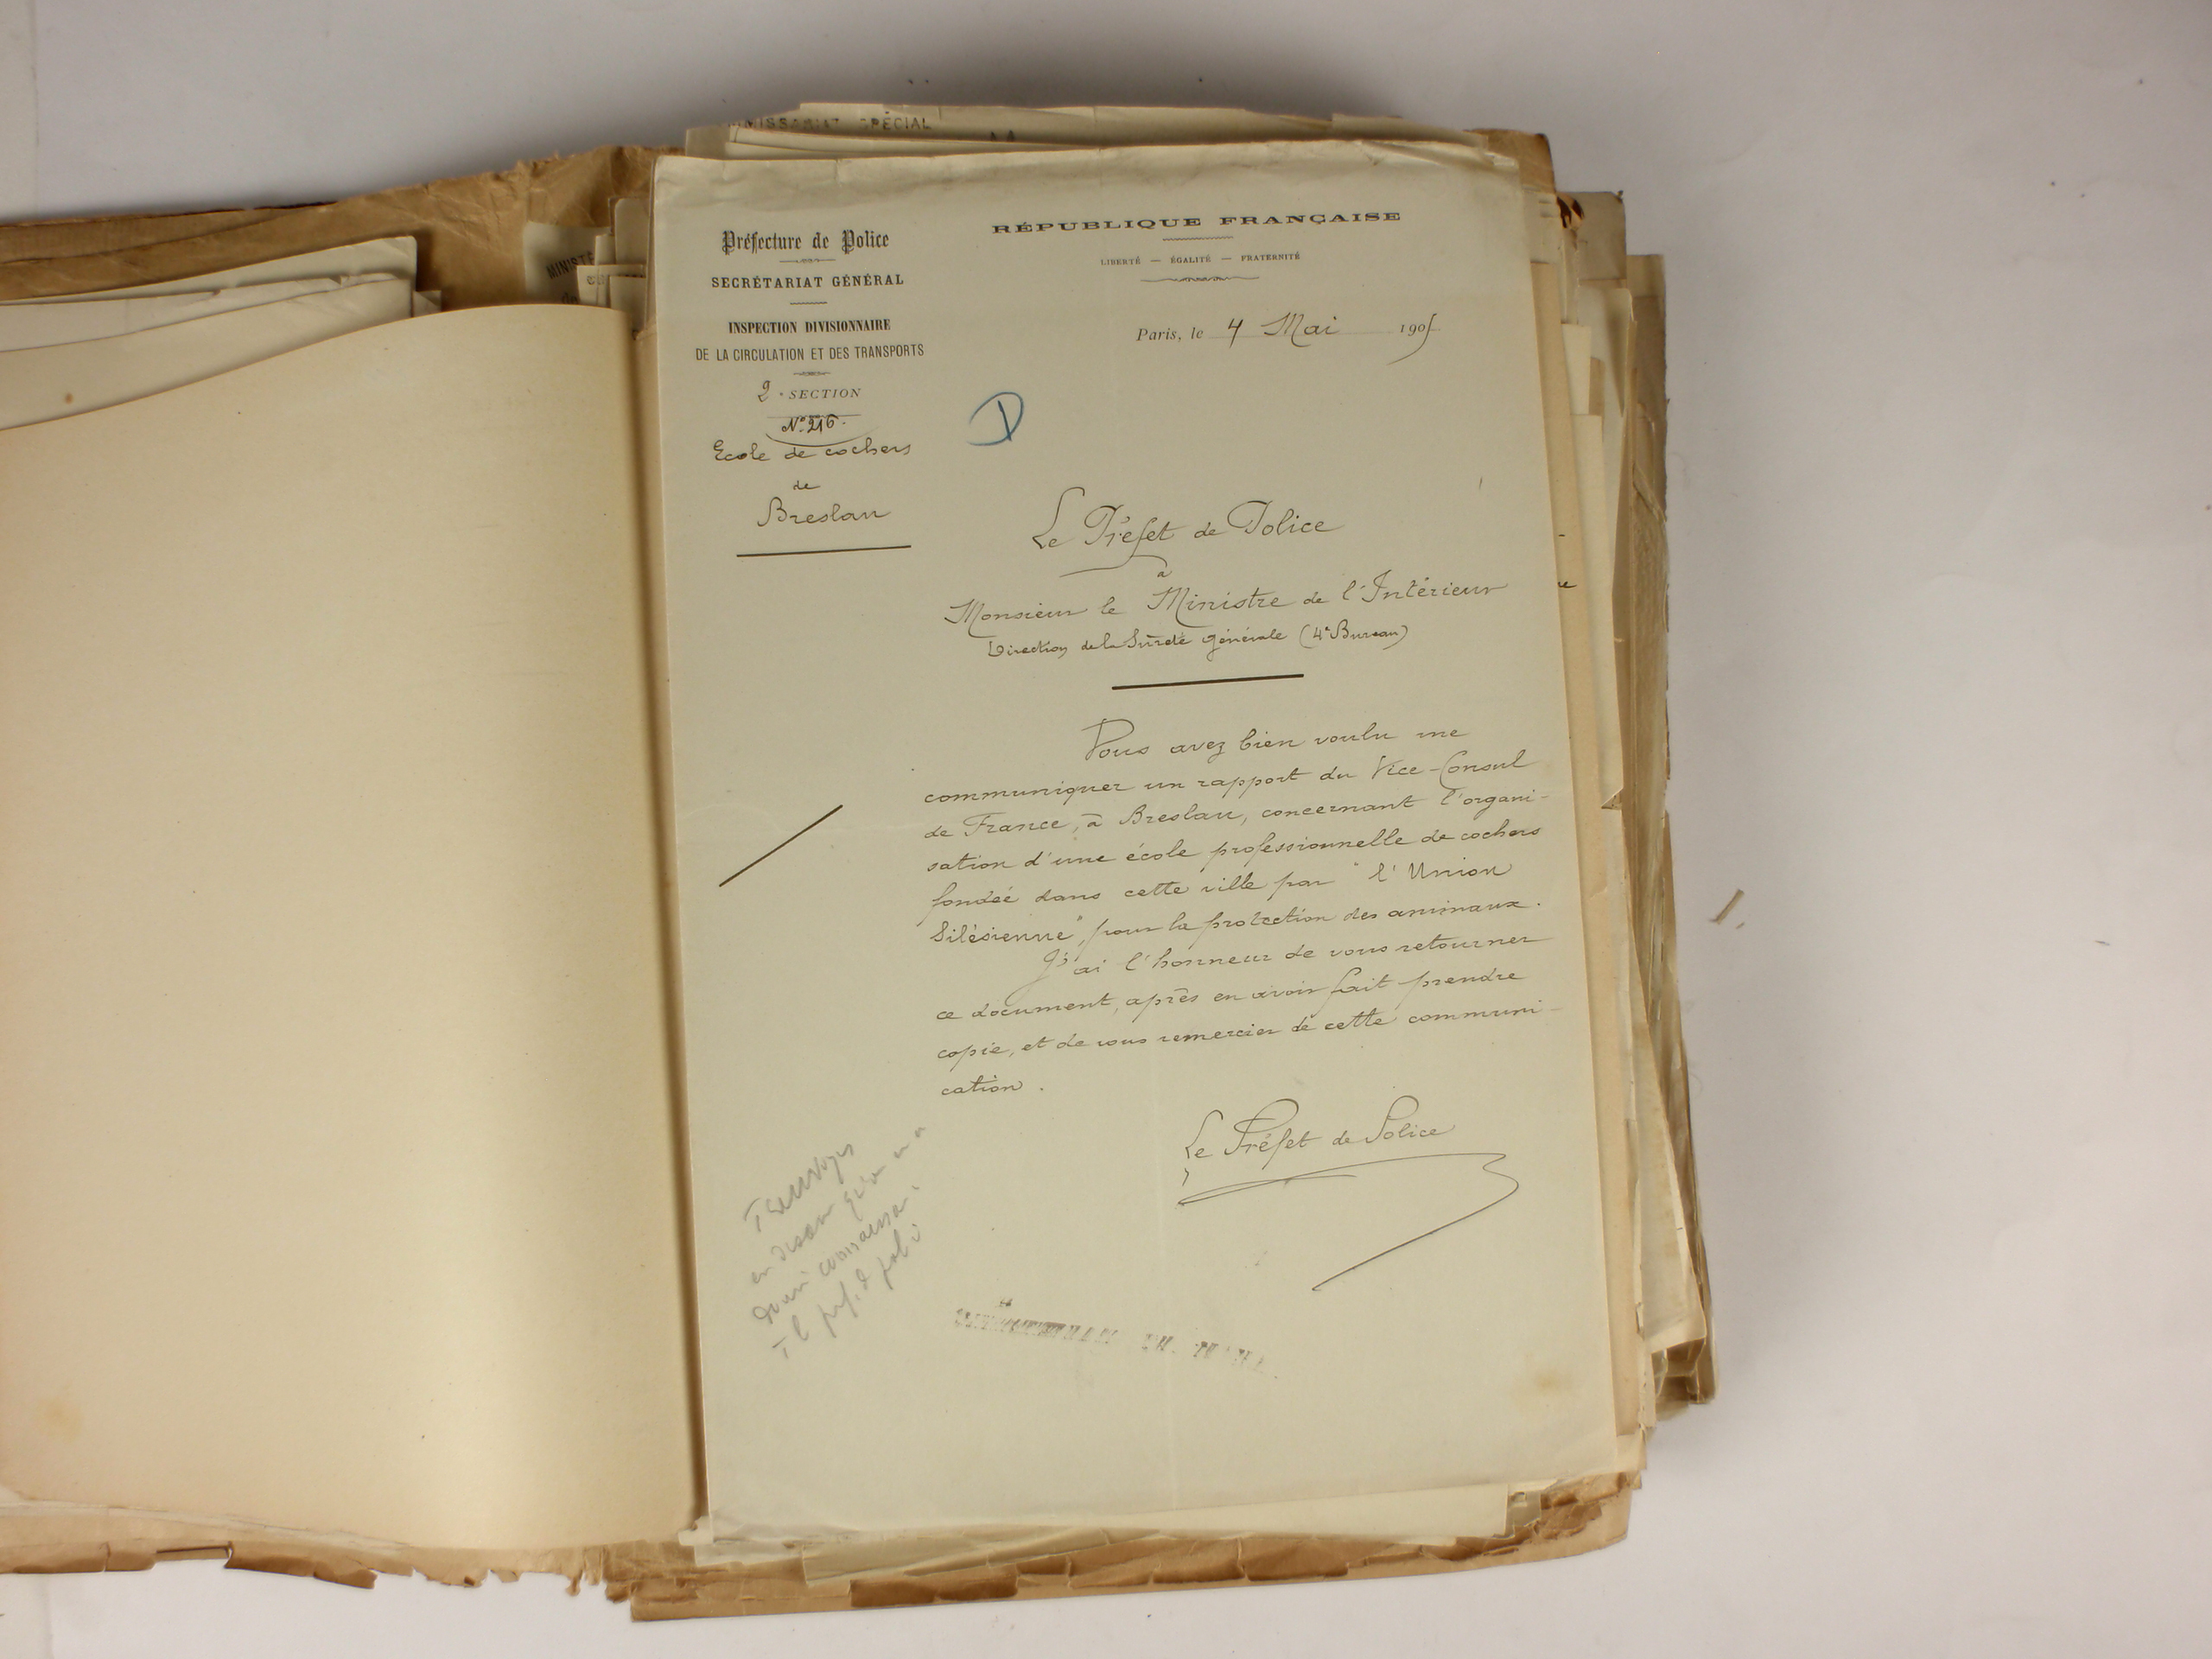 SPÉCIAL
MINISTÈ
Préfecture de Police
SECRÉTARIAT GÉNÉRAL
INSPECTION DIVISIONNAIRE
DE LA CIRCULATION ET DES TRANSPORTS
2e SECTION
N° 216.
Ecole de cochers
de
Breslau
RÉPUBLIQUE FRANÇAISE
LIBERTÉ — ÉGALITÉ — FRATERNITÉ
Paris, le 4 Mai 1905
D
Le Préfet de Police
à
Monsieur le Ministre de l'Intérieur
Direction de la Sûreté Générale (4e Bureau)
Vous avez bien voulu me
communiquer un rapport du Vice-Consul
de France, à Breslau, concernant l'organi-
sation d'une école professionnelle de cochers
fondée dans cette ville par "l'Union
Silésienne", pour la protection des animaux.
J'ai l'honneur de vous retourner
ce document, après en avoir fait prendre
copie, et de vous remercier de cette communi-
cation.
Le Préfet de Police